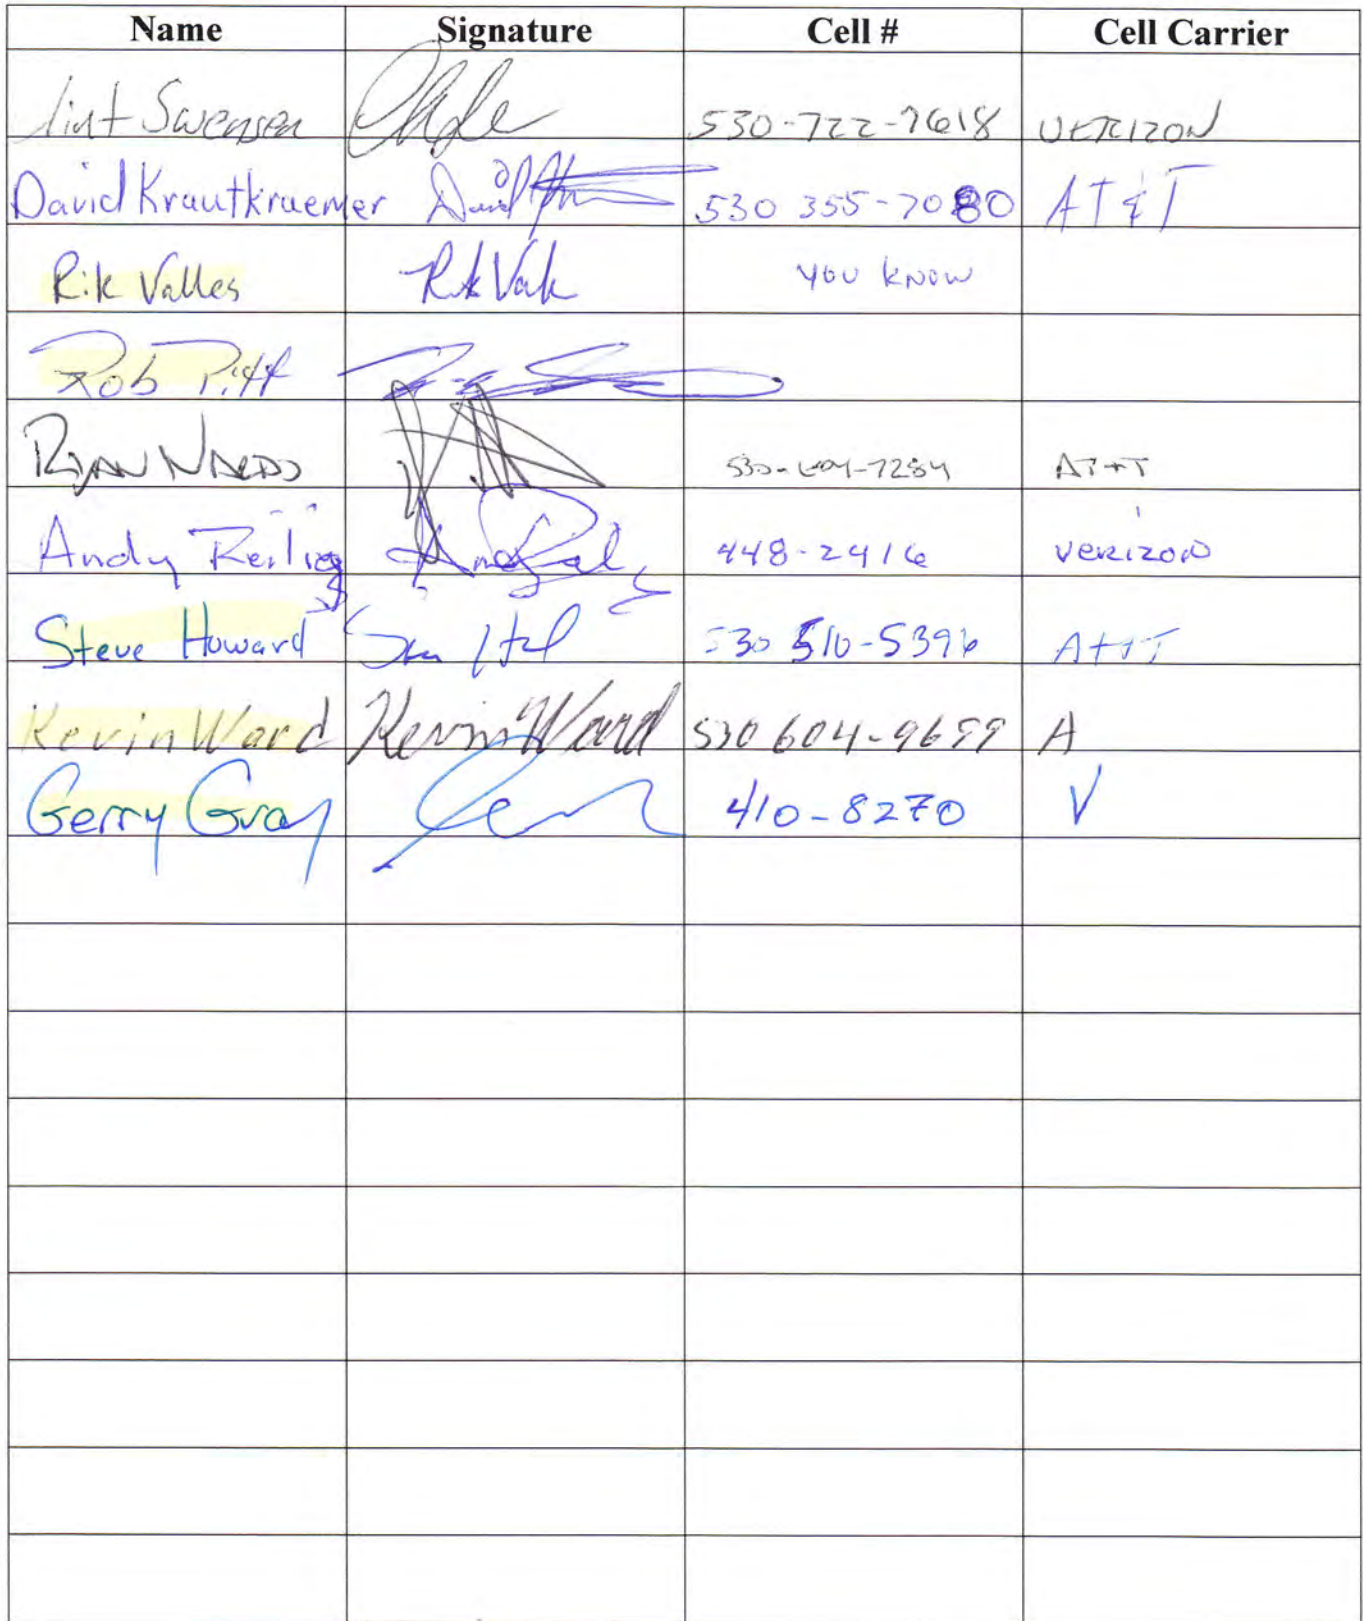 Name Signature Cell # Cell Carrier
Swensen 530-722-7618 VERIZON
David Krautkraemer 530 355-7080 AT&T
Rik Valles Rik Valls you know
Rob Piff
RYAN 530-604-7284 AT+T
Andy Reiling 448-2416 Verizon
Steve Howard 530 510-5396 AT&T
Kevin Ward Kevin Ward 530 604-9659 A
Gerry Gray 410-8270 V